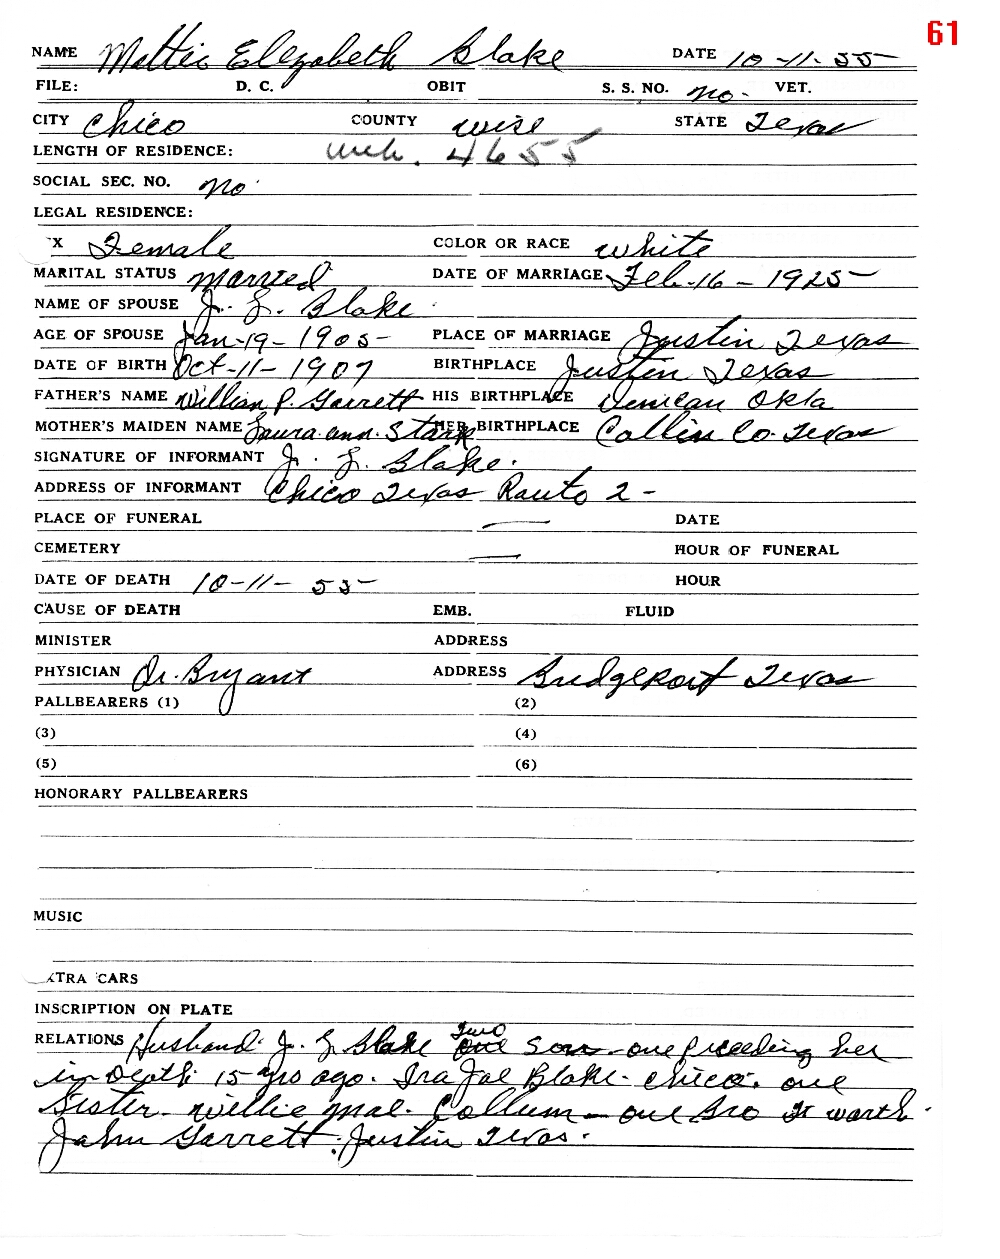 61
NAME Mattie Elezabeth Blake DATE 10-11-55
FILE: D. C. OBIT S. S. NO. no- VET.
CITY Chico COUNTY wise STATE Texas
LENGTH OF RESIDENCE: 4655
SOCIAL SEC. NO. no
LEGAL RESIDENCE:
X Female COLOR OR RACE white
MARITAL STATUS married DATE OF MARRIAGE Feb-16-1925
NAME OF SPOUSE J. L. Blake
AGE OF SPOUSE Jan-19-1905 PLACE OF MARRIAGE Justin Texas
DATE OF BIRTH Oct-11-1907 BIRTHPLACE Justin Texas
FATHER'S NAME William P. Garrett HIS BIRTHPLACE Duncan Okla
MOTHER'S MAIDEN NAME Laura ann. Stark HER BIRTHPLACE Collin Co. Texas
SIGNATURE OF INFORMANT J. L. Blake.
ADDRESS OF INFORMANT Chico Texas Rauto 2-
PLACE OF FUNERAL — DATE
CEMETERY — HOUR OF FUNERAL
DATE OF DEATH 10-11-55 HOUR
CAUSE OF DEATH EMB. FLUID
MINISTER ADDRESS
PHYSICIAN Dr. Bryant ADDRESS Bridgeport Texas
PALLBEARERS (1) (2)
(3) (4)
(5) (6)
HONORARY PALLBEARERS
MUSIC
XTRA CARS
INSCRIPTION ON PLATE
RELATIONS Husband J. L. Blake Two Sons - one preceeding her
in Death 15 yrs ago. Ira Joe Blake - Chico. one
Sister - Willie mae. Collum - one Bro Ft worth.
John Garrett. Justin Texas.